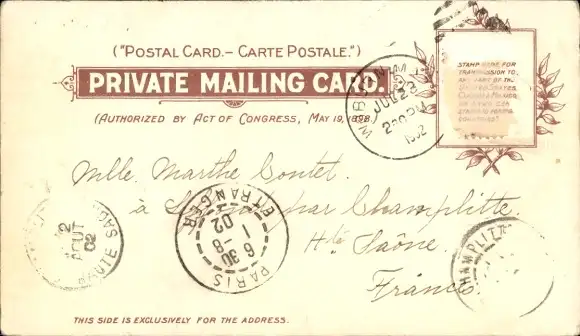 ("POSTAL CARD.– CARTE POSTALE.")
PRIVATE MAILING CARD.
(AUTHORIZED BY ACT OF CONGRESS, MAY 19, 1898.)
STAMP HERE FOR
TRANSMISSION TO
ANY PART OF THE
UNITED STATES,
CANADA & MEXICO
JUL 23
PM
1902
Mlle. Marthe Contet.
à par Champlitte
Hte Saône.
France
PARIS
ETRANGER
6 30
1 - 8
02
2
AOUT
02
CHAMPLITTE
THIS SIDE IS EXCLUSIVELY FOR THE ADDRESS.